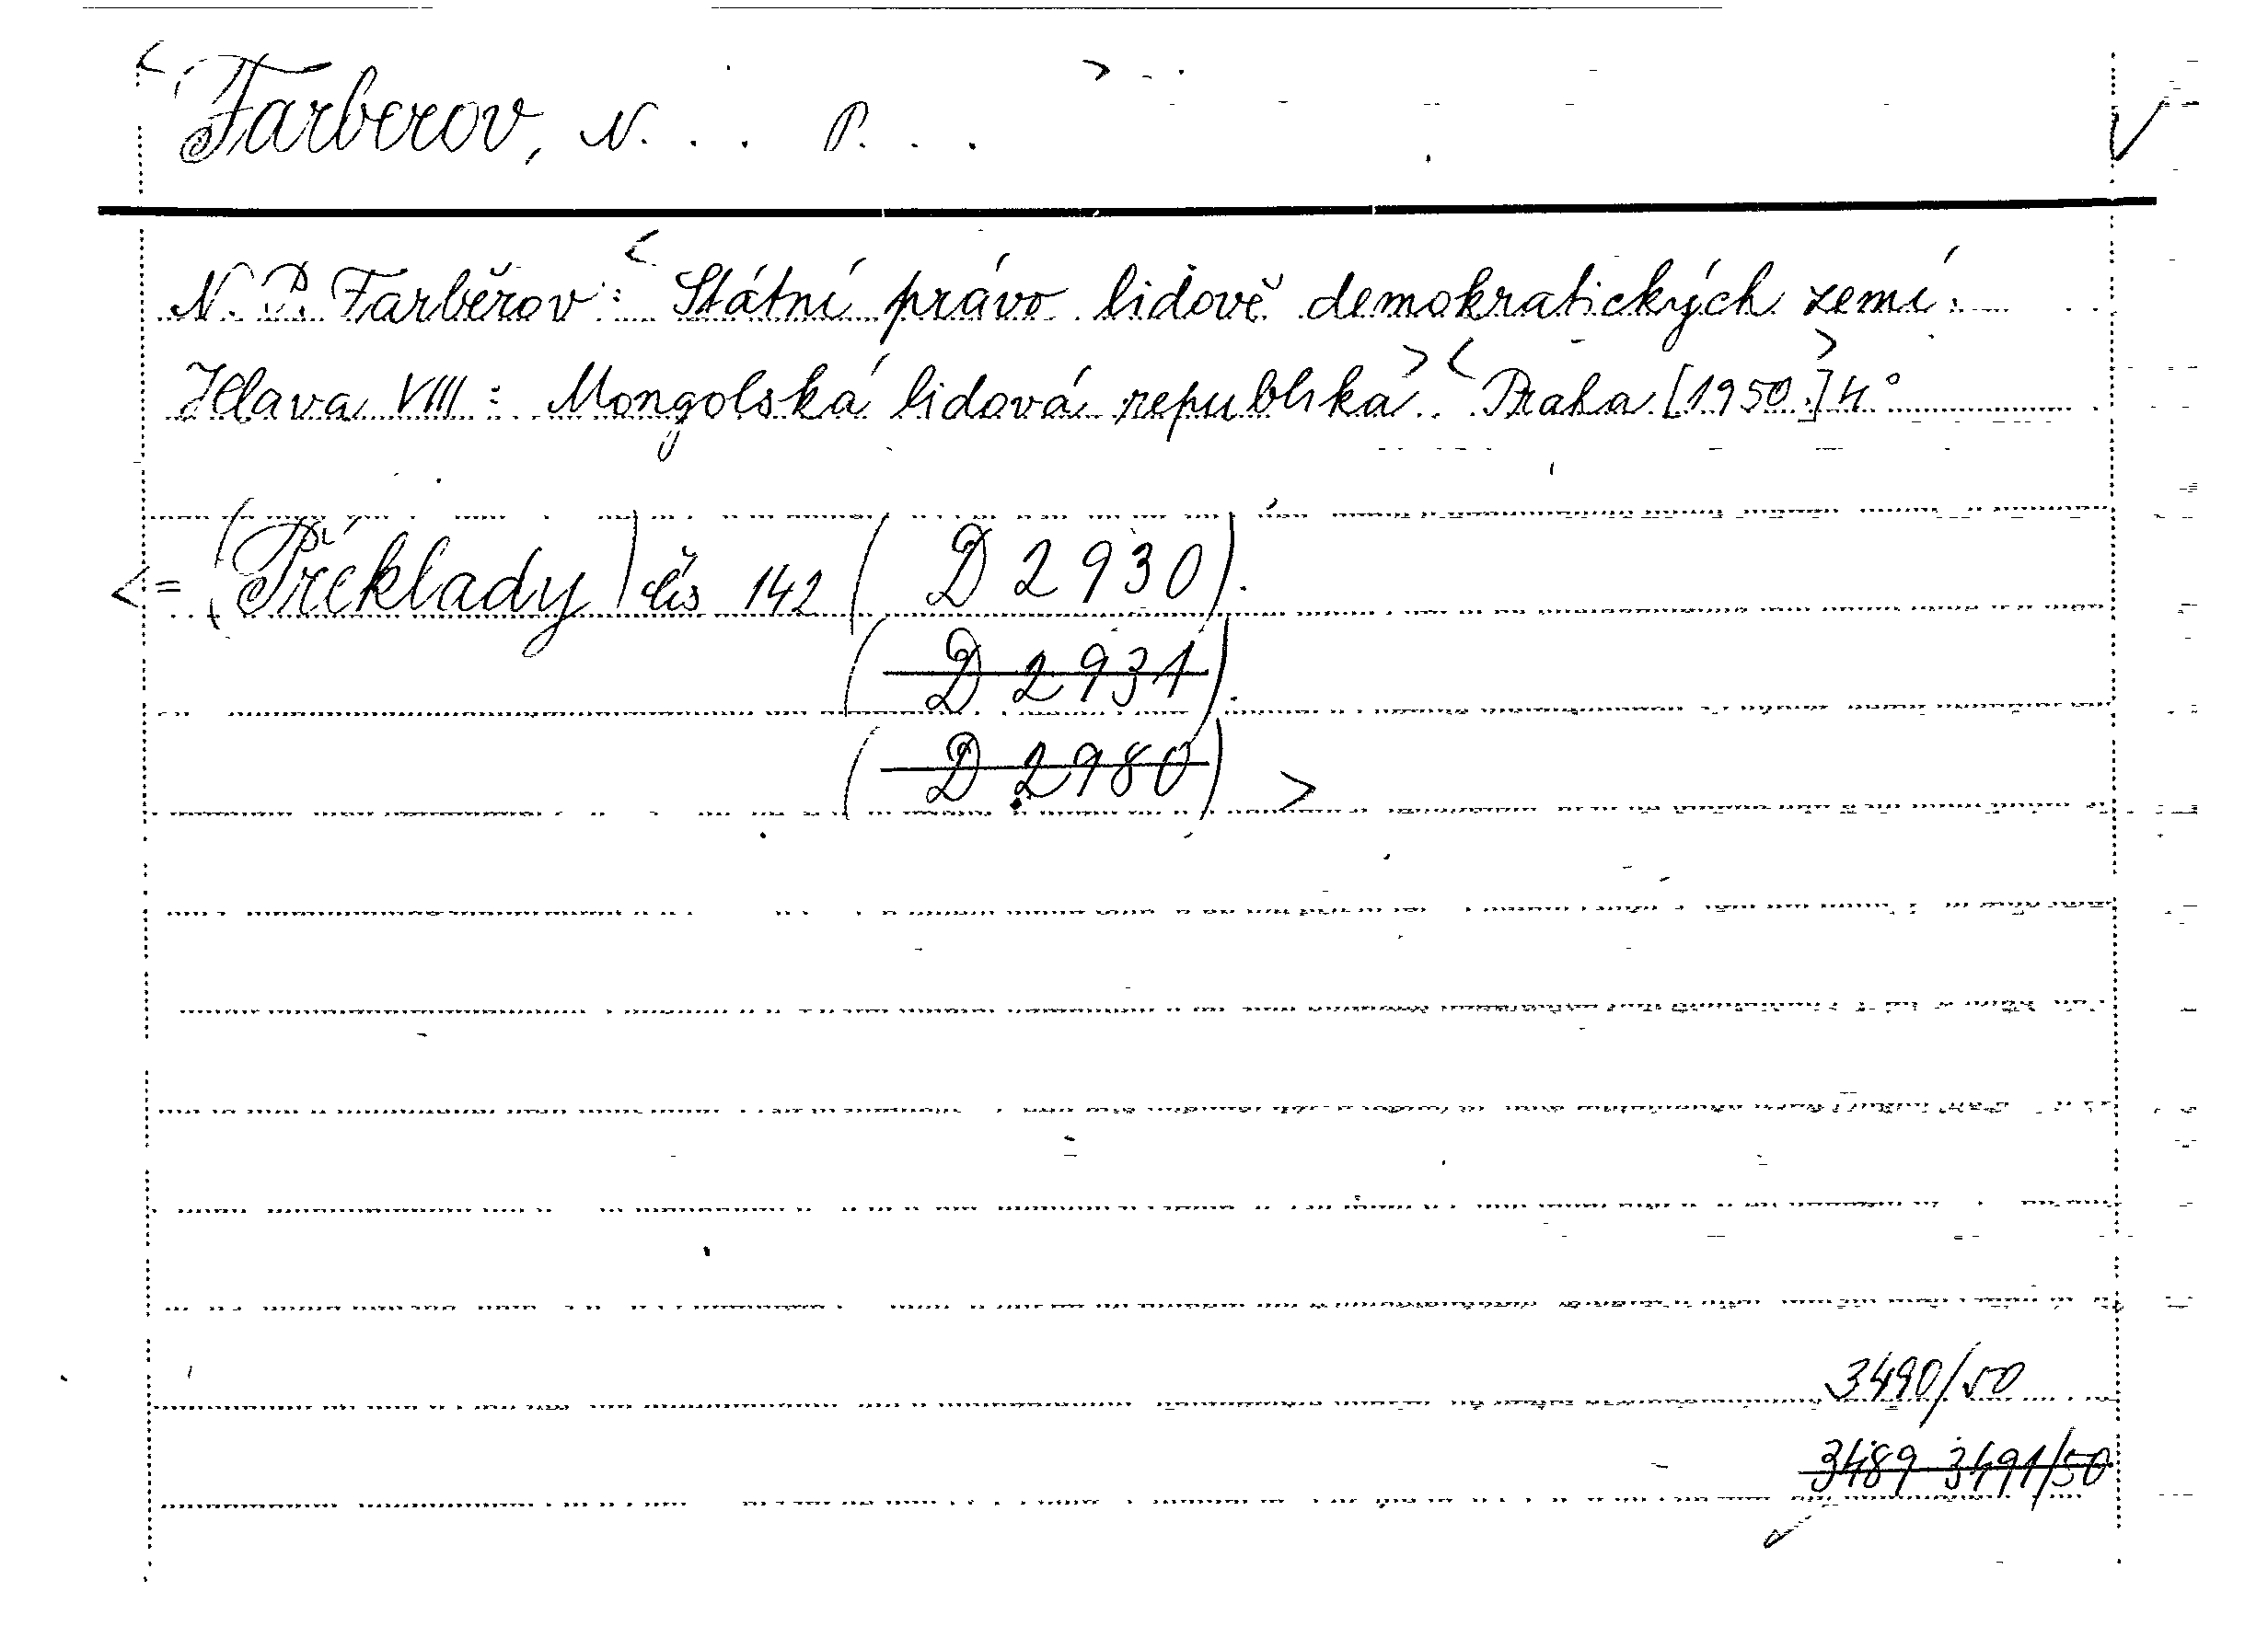 <Farberov, N. . . P. . . > ✓
N. P. Farběrov: <Státní právo lidově demokratických zemí.
Hlava VIII: Mongolská lidová republika.> <Praha [1950.]> 4°
<= (Překlady) čís 142 ( D 2930).
( D 2931).
( D 2980) >
3490/50
3489 3491/50